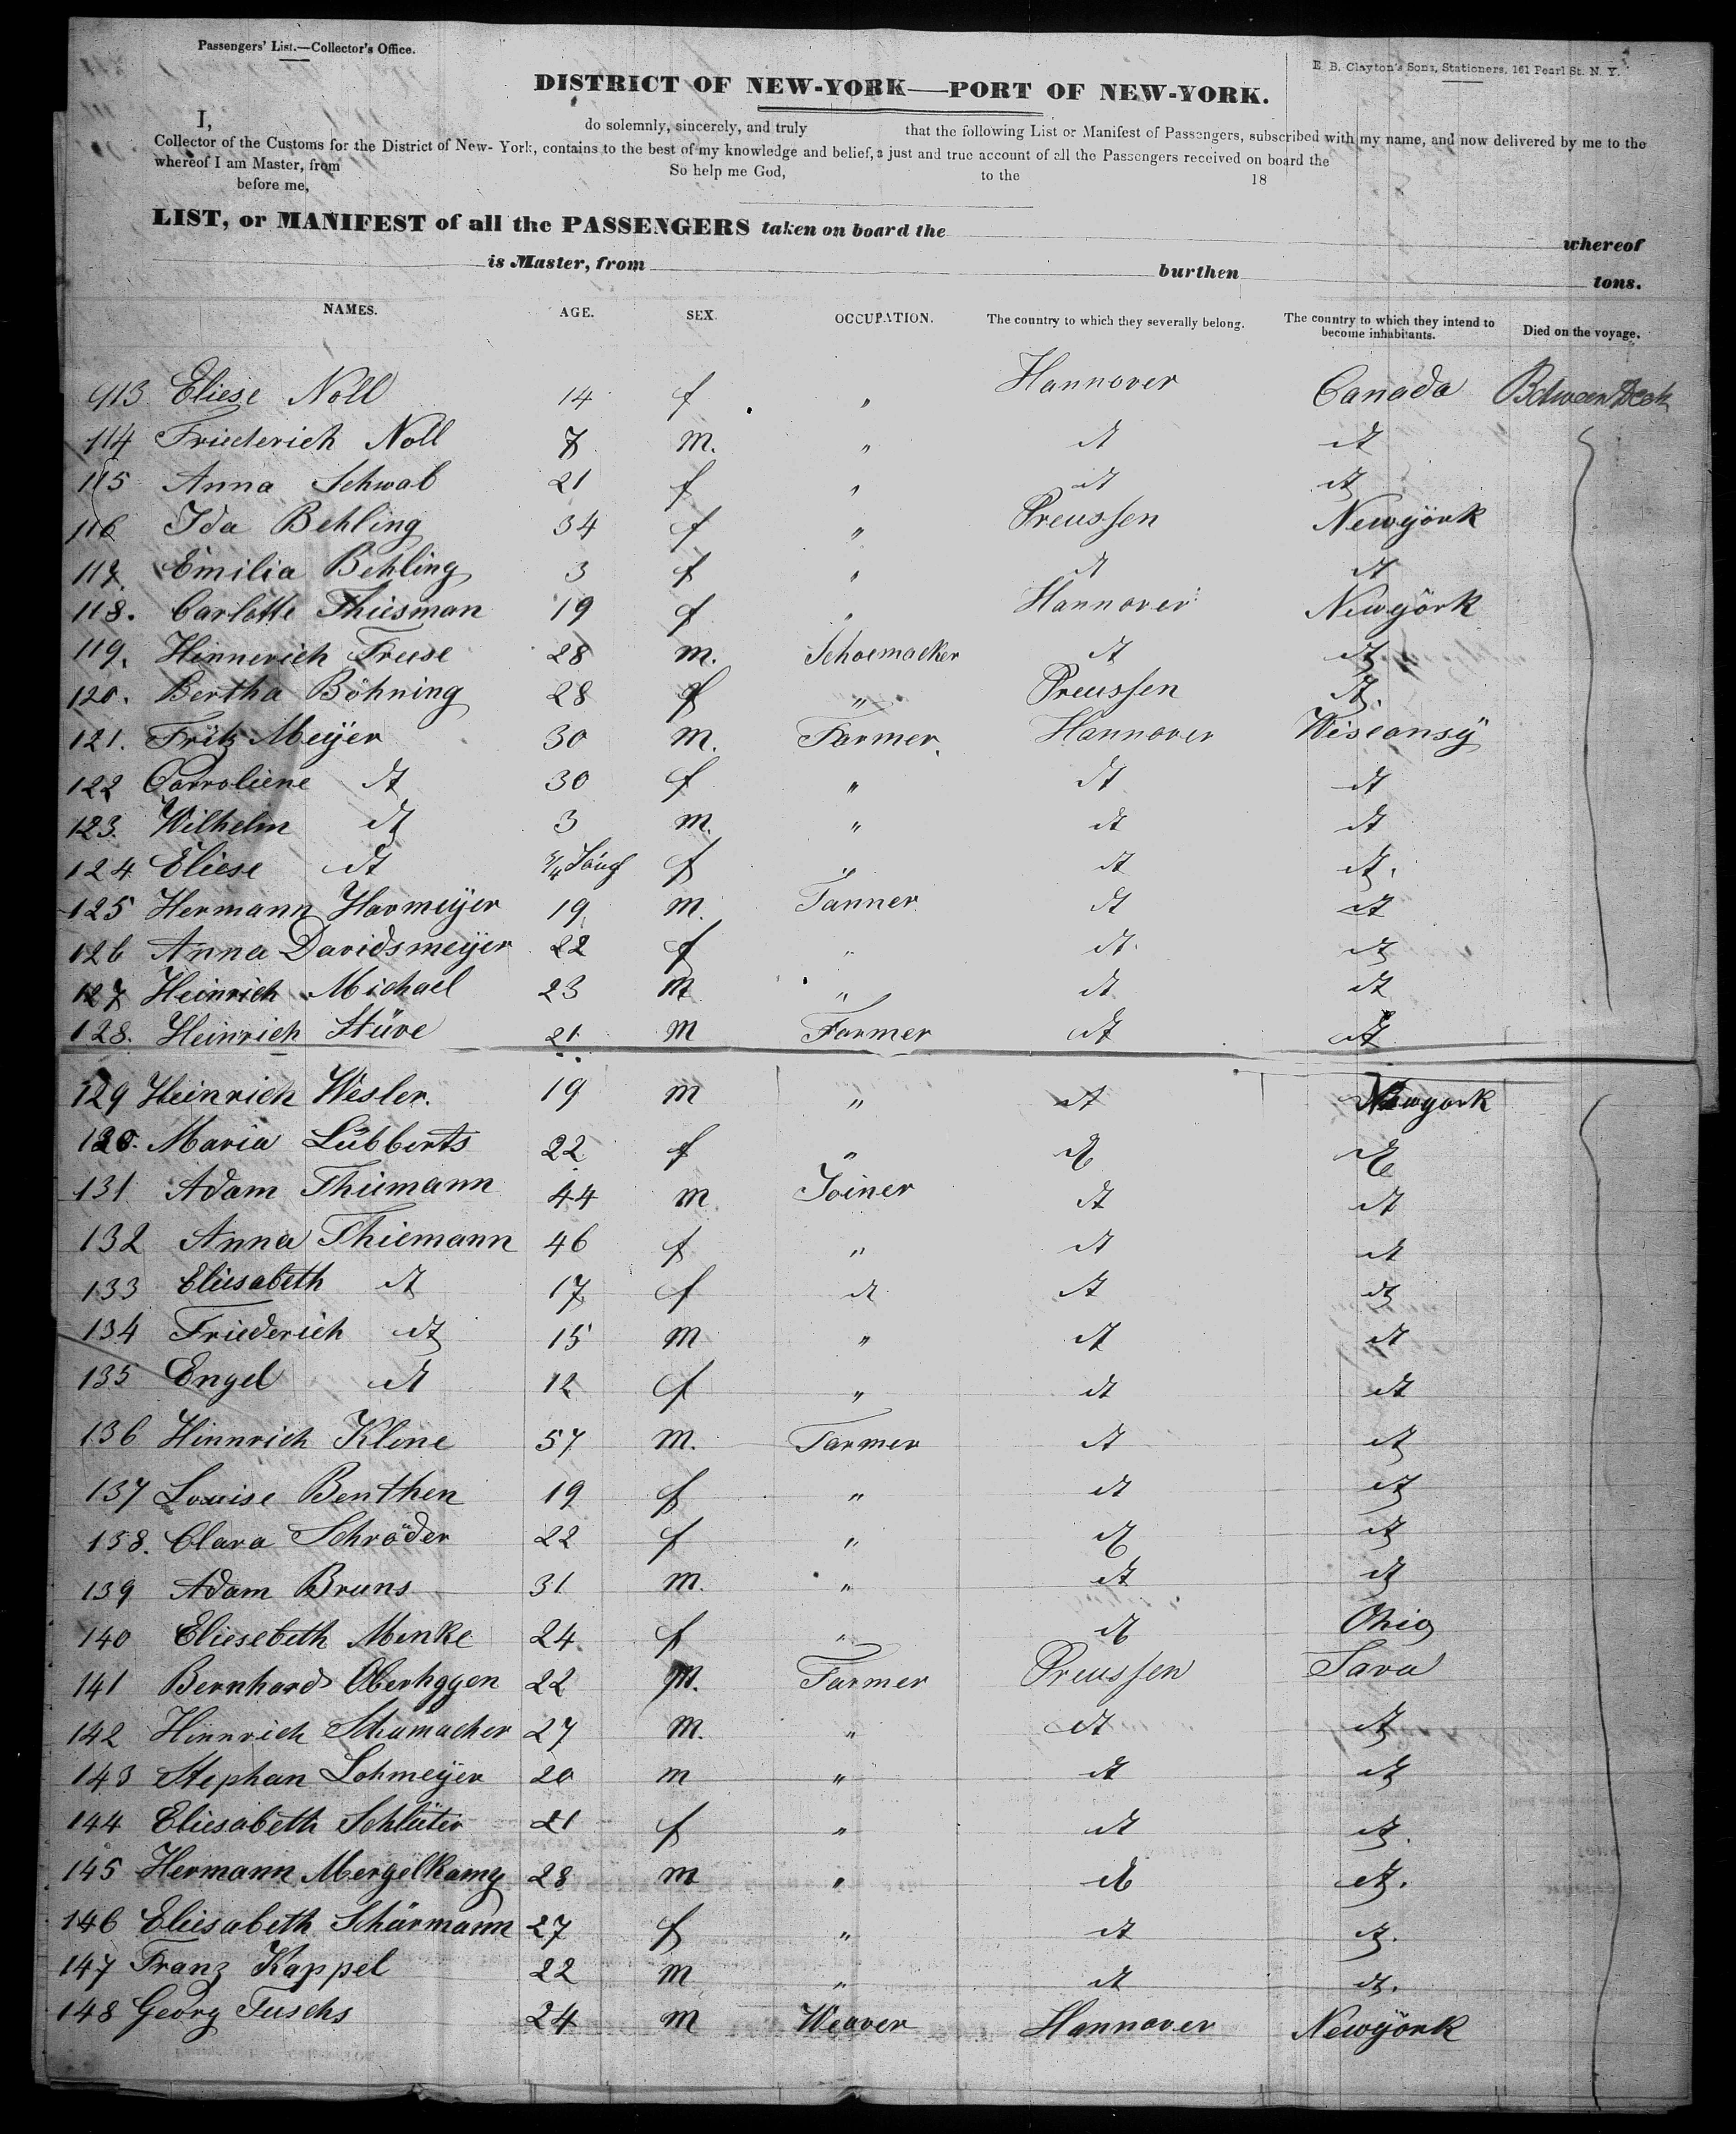 Passengers' List.—Collector's Office.
E. B. Clayton's Sons, Stationers, 161 Pearl St. N. Y.
DISTRICT OF NEW-YORK—PORT OF NEW-YORK.
I, do solemnly, sincerely, and truly that the following List or Manifest of Passengers, subscribed with my name, and now delivered by me to the
Collector of the Customs for the District of New-York, contains to the best of my knowledge and belief, a just and true account of all the Passengers received on board the
whereof I am Master, from So help me God, to the 18
before me,
LIST, or MANIFEST of all the PASSENGERS taken on board the whereof
is Master, from burthen tons.
NAMES. AGE. SEX. OCCUPATION. The country to which they severally belong. The country to which they intend to become inhabitants. Died on the voyage.
113 Eliese Noll 14 f " Hannover Canada Between Deck
114 Friederich Noll 7 m. " dt dt
115 Anna Schwab 21 f " dt dt
116 Ida Behling 34 f " Preussen Newyörk
117 Emilia Behling 3 f " dt dt
118. Carlotte Thiesman 19 f " Hannover Newyörk
119. Hinnerich Freese 28 m. Schoemacker dt dt
120. Bertha Böhning 28 f " Preussen dt.
121. Fritz Meÿer 30 m. Farmer. Hannover Wisconsÿ
122 Carroliene dt 30 f " dt dt
123. Wilhelm dt 3 m. " dt dt
124 Eliese dt 3/4 Säugl f " dt dt.
125 Hermann Harmeÿer 19 m. Tanner dt dt
126 Anna Davidsmeÿer 22 f " dt. dt
127 Heinrich Michael 23 m " dt dt
128. Heinrich Stüve 21 m Farmer dt dt
129 Heinrich Wesler. 19 m " dt Newyork
130. Maria Lübberts 22 f " dt dt
131 Adam Thiemann 44 m Joiner dt dt
132 Anna Thiemann 46 f " dt dt
133 Eliesabeth dt 17 f dt dt dt
134 Friederich dt 15 m " dt dt
135 Engel dt 12 f " dt dt
136 Hinnrich Klene 57 m. Farmer dt dt
137 Louise Benthen 19 f " dt dt
138. Clara Schröder 22 f " dt dt
139 Adam Bruns 31 m. " dt dt
140 Eliesebeth Menke 24 f " dt Ohio
141 Bernhard 22 m. Farmer Preussen
142 Hinnrich Schumacher 27 m. " dt dt
143 Stephan Lohmeÿer 20 m " dt dt
144 Eliesabeth Schlüter 21 f " dt dt.
145 Hermann Mergelkamp 28 m " dt dt.
146 Eliesabeth Schürmann 27 f " dt dt.
147 Franz Kappel 22 m " dt dt.
148 Georg Fuschs 24 m Weaver Hannover Newyörk